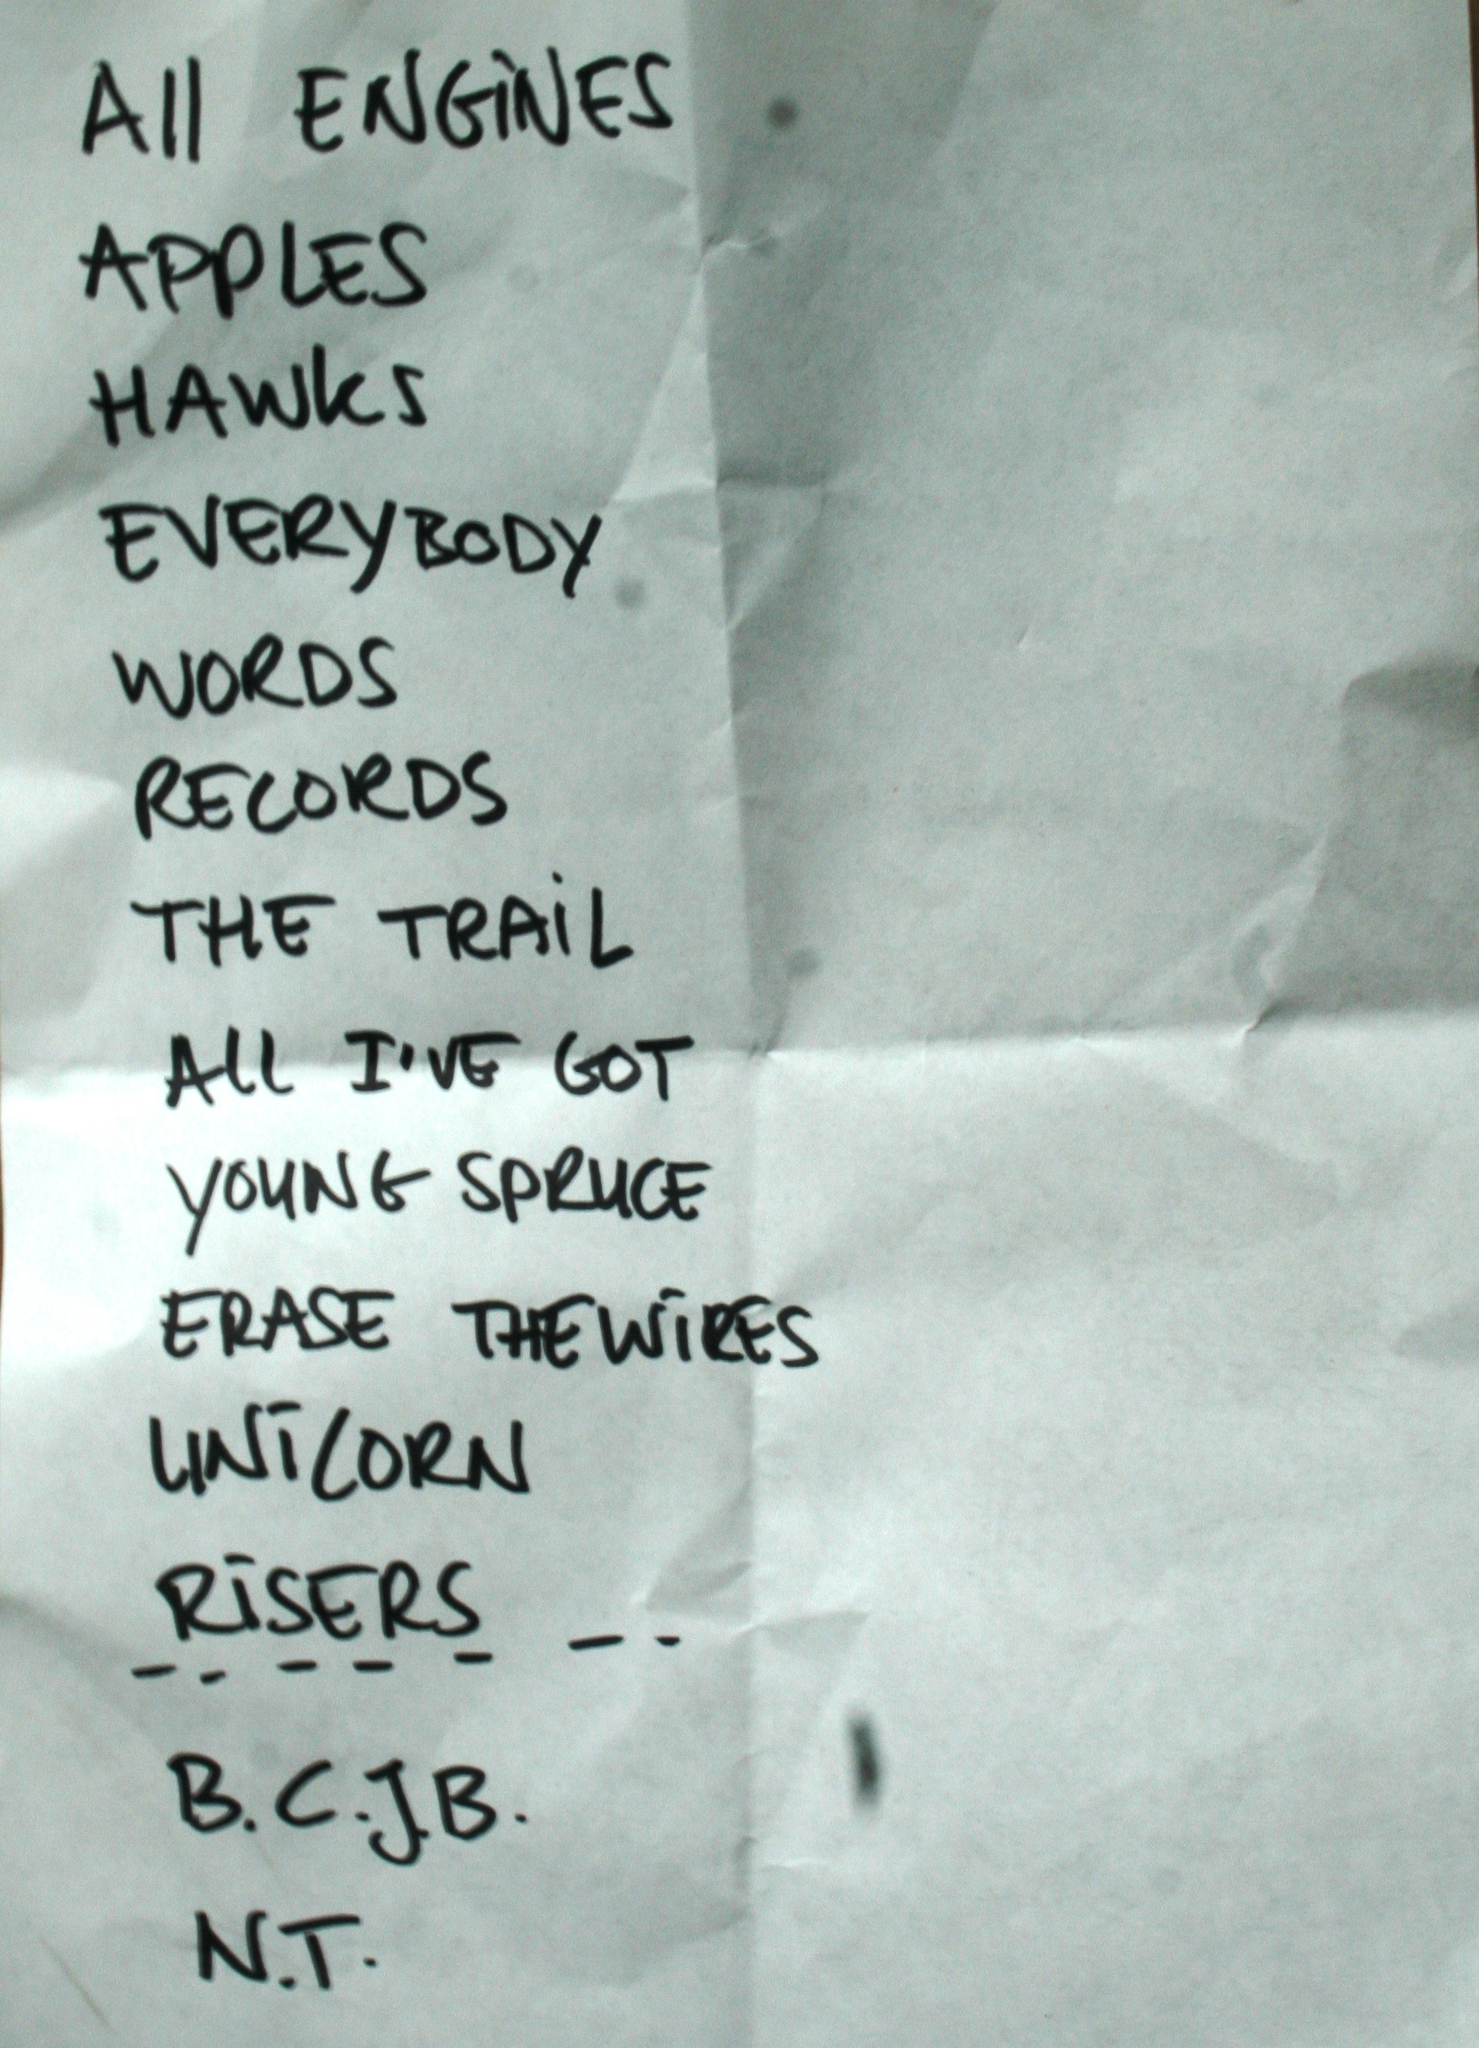 All ENGINES
APPLES
HAWKS
EVERYBODY
WORDS
RECORDS
THE TRAIL
All I'VE GOT
YOUNG SPRUCE
ERASE THE WIRES
UNICORN
RISERS
B.C.J.B.
N.T.